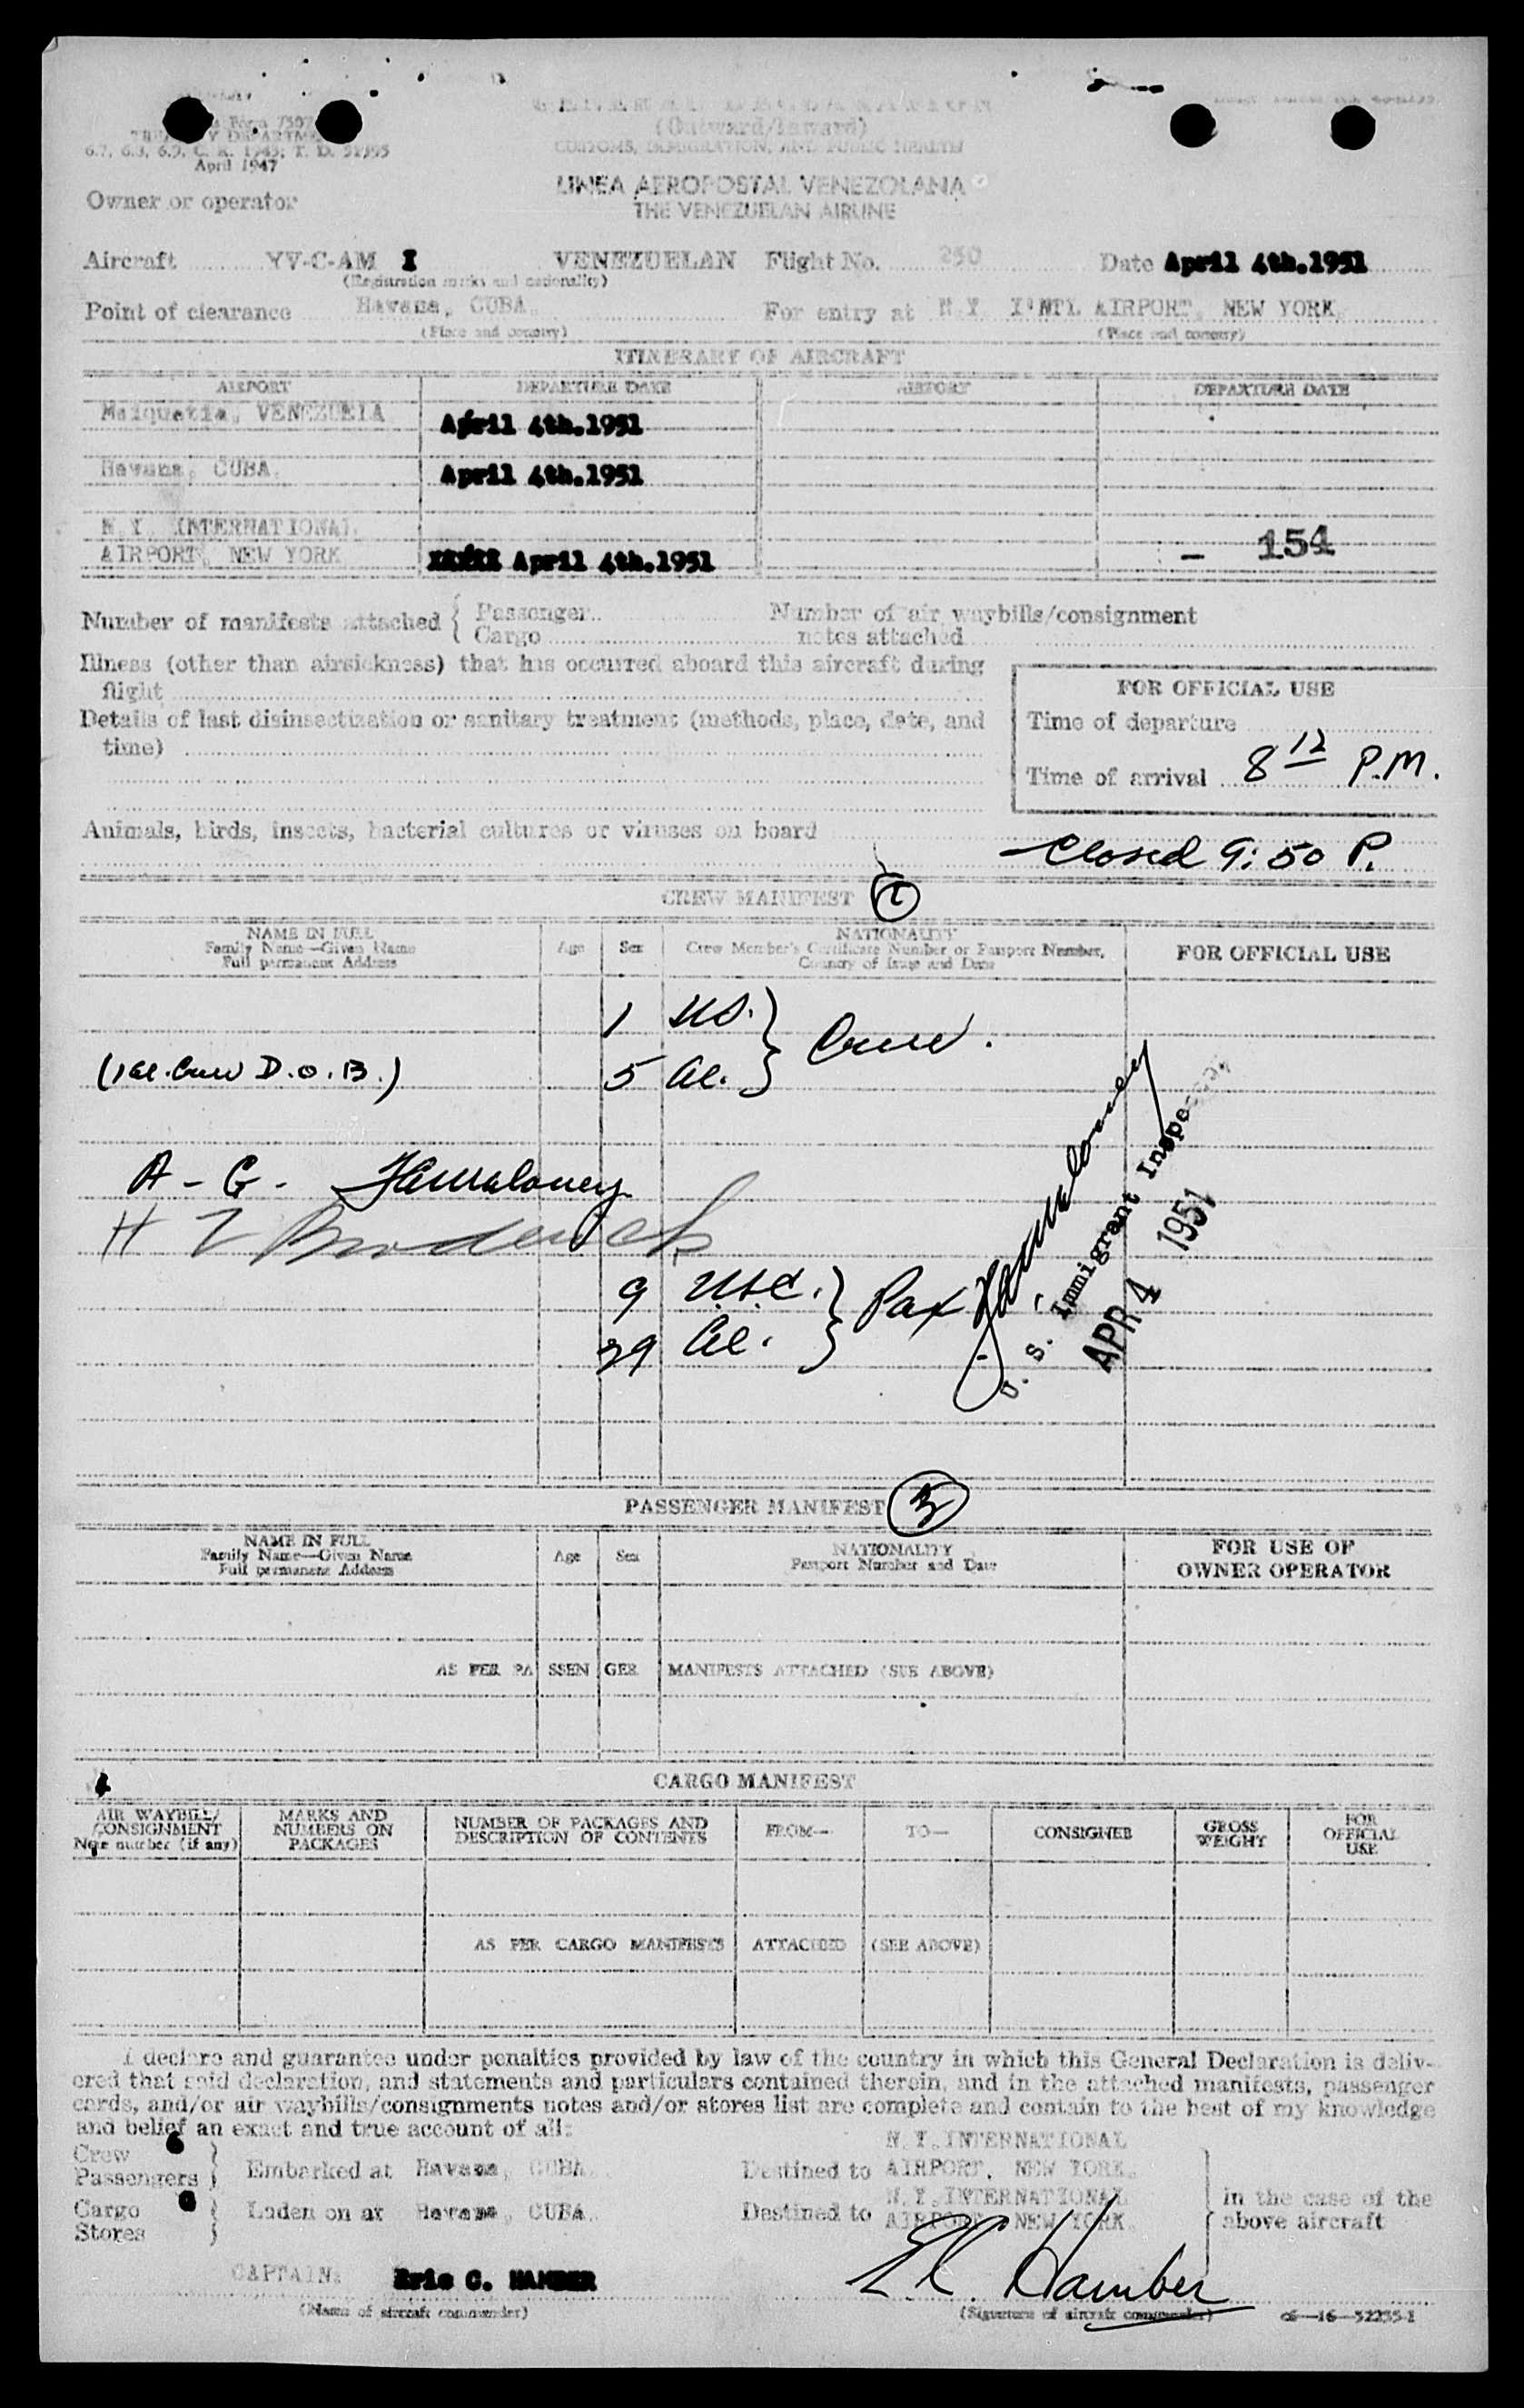 Form 7507
TREASURY DEPARTMENT
6.7, 6.8, 6.9, C. R. 1943; T. D. 51995
April 1947
(Outward/Inward)
CUSTOMS, IMMIGRATION, AND PUBLIC HEALTH
LINEA AEROPOSTAL VENEZOLANA
THE VENEZUELAN AIRLINE
Owner or operator
Aircraft YV-C-AM I VENEZUELAN Flight No. 250 Date April 4th.1951
(Registration marks and nationality)
Point of clearance Havana, CUBA. For entry at N.Y. I'NTL AIRPORT, NEW YORK.
(Place and country) (Place and country)
ITINERARY OF AIRCRAFT
AIRPORT DEPARTURE DATE AIRPORT DEPARTURE DATE
Maiquetia, VENEZUELA April 4th.1951
Havana, CUBA. April 4th.1951
N.Y. INTERNATIONAL
AIRPORT, NEW YORK April 4th.1951 - 154
Number of manifests attached { Passenger Number of air waybills/consignment
Cargo notes attached
Illness (other than airsickness) that has occurred aboard this aircraft during
flight
FOR OFFICIAL USE
Details of last disinsectization or sanitary treatment (methods, place, date, and
time)
Time of departure
Time of arrival 8 12 P.M.
Animals, birds, insects, bacterial cultures or viruses on board
Closed 9:50 P.
CREW MANIFEST
NAME IN FULL
Family Name—Given Name
Full permanent Address
Age Sex
NATIONALITY
Crew Member's Certificate Number or Passport Number,
Country of Issue and Date
FOR OFFICIAL USE
1 US. } Crew.
(1 al. Crew D.O.B.) 5 al.
A - G -
H
9 USC. } Pax
29 al.
U. S. Immigrant Inspector
APR 4 1951
PASSENGER MANIFEST 3
NAME IN FULL
Family Name—Given Name
Full permanent Address
Age Sex
NATIONALITY
Passport Number and Date
FOR USE OF
OWNER OPERATOR
AS PER PASSENGER MANIFESTS ATTACHED (SEE ABOVE)
CARGO MANIFEST
AIR WAYBILL/
CONSIGNMENT
Note number (if any)
MARKS AND
NUMBERS ON
PACKAGES
NUMBER OF PACKAGES AND
DESCRIPTION OF CONTENTS
FROM— TO— CONSIGNEE
GROSS
WEIGHT
FOR
OFFICIAL
USE
AS PER CARGO MANIFESTS ATTACHED (SEE ABOVE)
I declare and guarantee under penalties provided by law of the country in which this General Declaration is deliv-
ered that said declaration, and statements and particulars contained therein, and in the attached manifests, passenger
cards, and/or air waybills/consignments notes and/or stores list are complete and contain to the best of my knowledge
and belief an exact and true account of all:
Crew 6
Passengers } Embarked at Havana, CUBA. Destined to N.Y. INTERNATIONAL AIRPORT, NEW YORK.
Cargo
Stores } Laden on at Havana, CUBA. Destined to N.Y. INTERNATIONAL AIRPORT, NEW YORK.
in the case of the
above aircraft
CAPTAIN: Eric C. HAMBER E C Hamber
(Name of aircraft commander) (Signature of aircraft commander) c6—16—52255-1